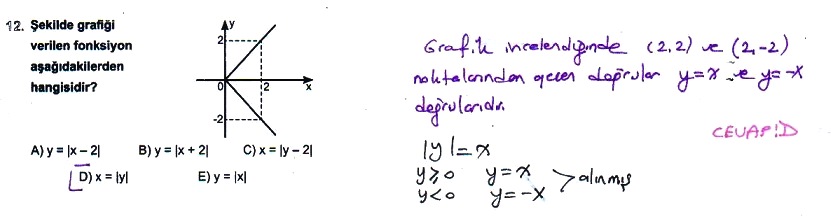 12. Şekilde grafiği
verilen fonksiyon
aşağıdakilerden
hangisidir?
y
2
0
2
x
-2
A) y = |x – 2|
B) y = |x + 2|
C) x = |y – 2|
D) x = |y|
E) y = |x|
Grafik incelendiğinde (2,2) ve (2,-2)
noktalarından geçen doğrular y=x ve y=-x
doğrularıdır.
CEVAP:D
|y|=x
y≥0 y=x
y<0 y=-x
>alınmış